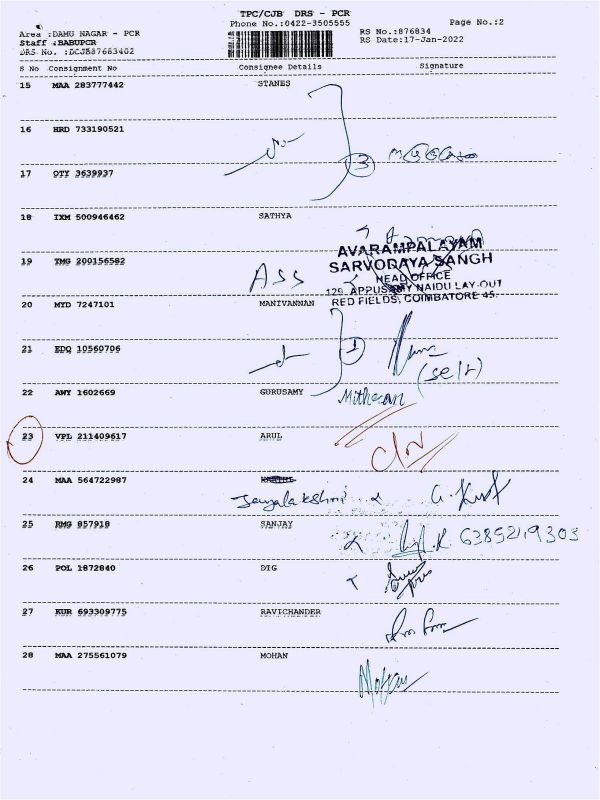 TPC/CJB DRS - PCR
Phone No.:0422-3505555
Page No.:2
Area :DAMU NAGAR - PCR
Staff :BABUPCR
DRS No. :DCJB87683402
RS No.:876834
RS Date:17-Jan-2022
S No Consignment No Consignee Details Signature
15 MAA 283777442 STANES
16 HRD 733190521
3
17 OTY 3639937
18 IXM 500946462 SATHYA
AVARAMPALAYAM
SARVODAYA SANGH
HEAD OFFICE
129, APPUSAMY NAIDU LAY-OUT
RED FIELDS, COIMBATORE 45.
19 TMG 200156582
ASS
20 MYD 7247101 MANIVANNAN
21 EDQ 10560706
1
(self)
22 AWY 1602669 GURUSAMY
Mitheran
23 VPL 211409617 ARUL
24 MAA 564722987
Jeyalakshmi
25 RMG 857918 SANJAY
6385219303
26 POL 1872840 DIG
27 KUR 693309775 RAVICHANDER
28 MAA 275561079 MOHAN
Mohan